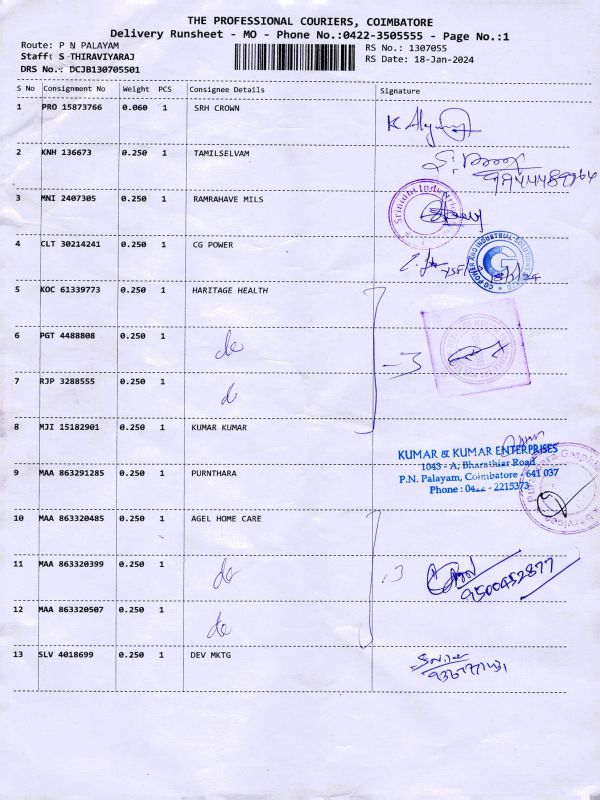 THE PROFESSIONAL COURIERS, COIMBATORE
Delivery Runsheet - MO - Phone No.:0422-3505555 - Page No.:1
Route: P N PALAYAM RS No.: 1307055
Staff: S THIRAVIYARAJ RS Date: 18-Jan-2024
DRS No.: DCJB130705501
S No Consignment No Weight PCS Consignee Details Signature
1 PRO 15873766 0.060 1 SRH CROWN
2 KNH 136673 0.250 1 TAMILSELVAM
3 MNI 2407305 0.250 1 RAMRAHAVE MILS
Srinidhi Industries
4 CLT 30214241 0.250 1 CG POWER
CG POWER AND INDUSTRIAL SOLUTIONS
5 KOC 61339773 0.250 1 HARITAGE HEALTH
6 PGT 4488808 0.250 1 do
3
7 RJP 3288555 0.250 1 do
8 MJI 15182901 0.250 1 KUMAR KUMAR
KUMAR & KUMAR ENTERPRISES
1043 - A, Bharathiar Road
P.N. Palayam, Coimbatore - 641 037
Phone : 0422 - 2215373
9 MAA 863291285 0.250 1 PURNTHARA
10 MAA 863320485 0.250 1 AGEL HOME CARE
11 MAA 863320399 0.250 1 do
3
9500452877
12 MAA 863320507 0.250 1 do
13 SLV 4018699 0.250 1 DEV MKTG